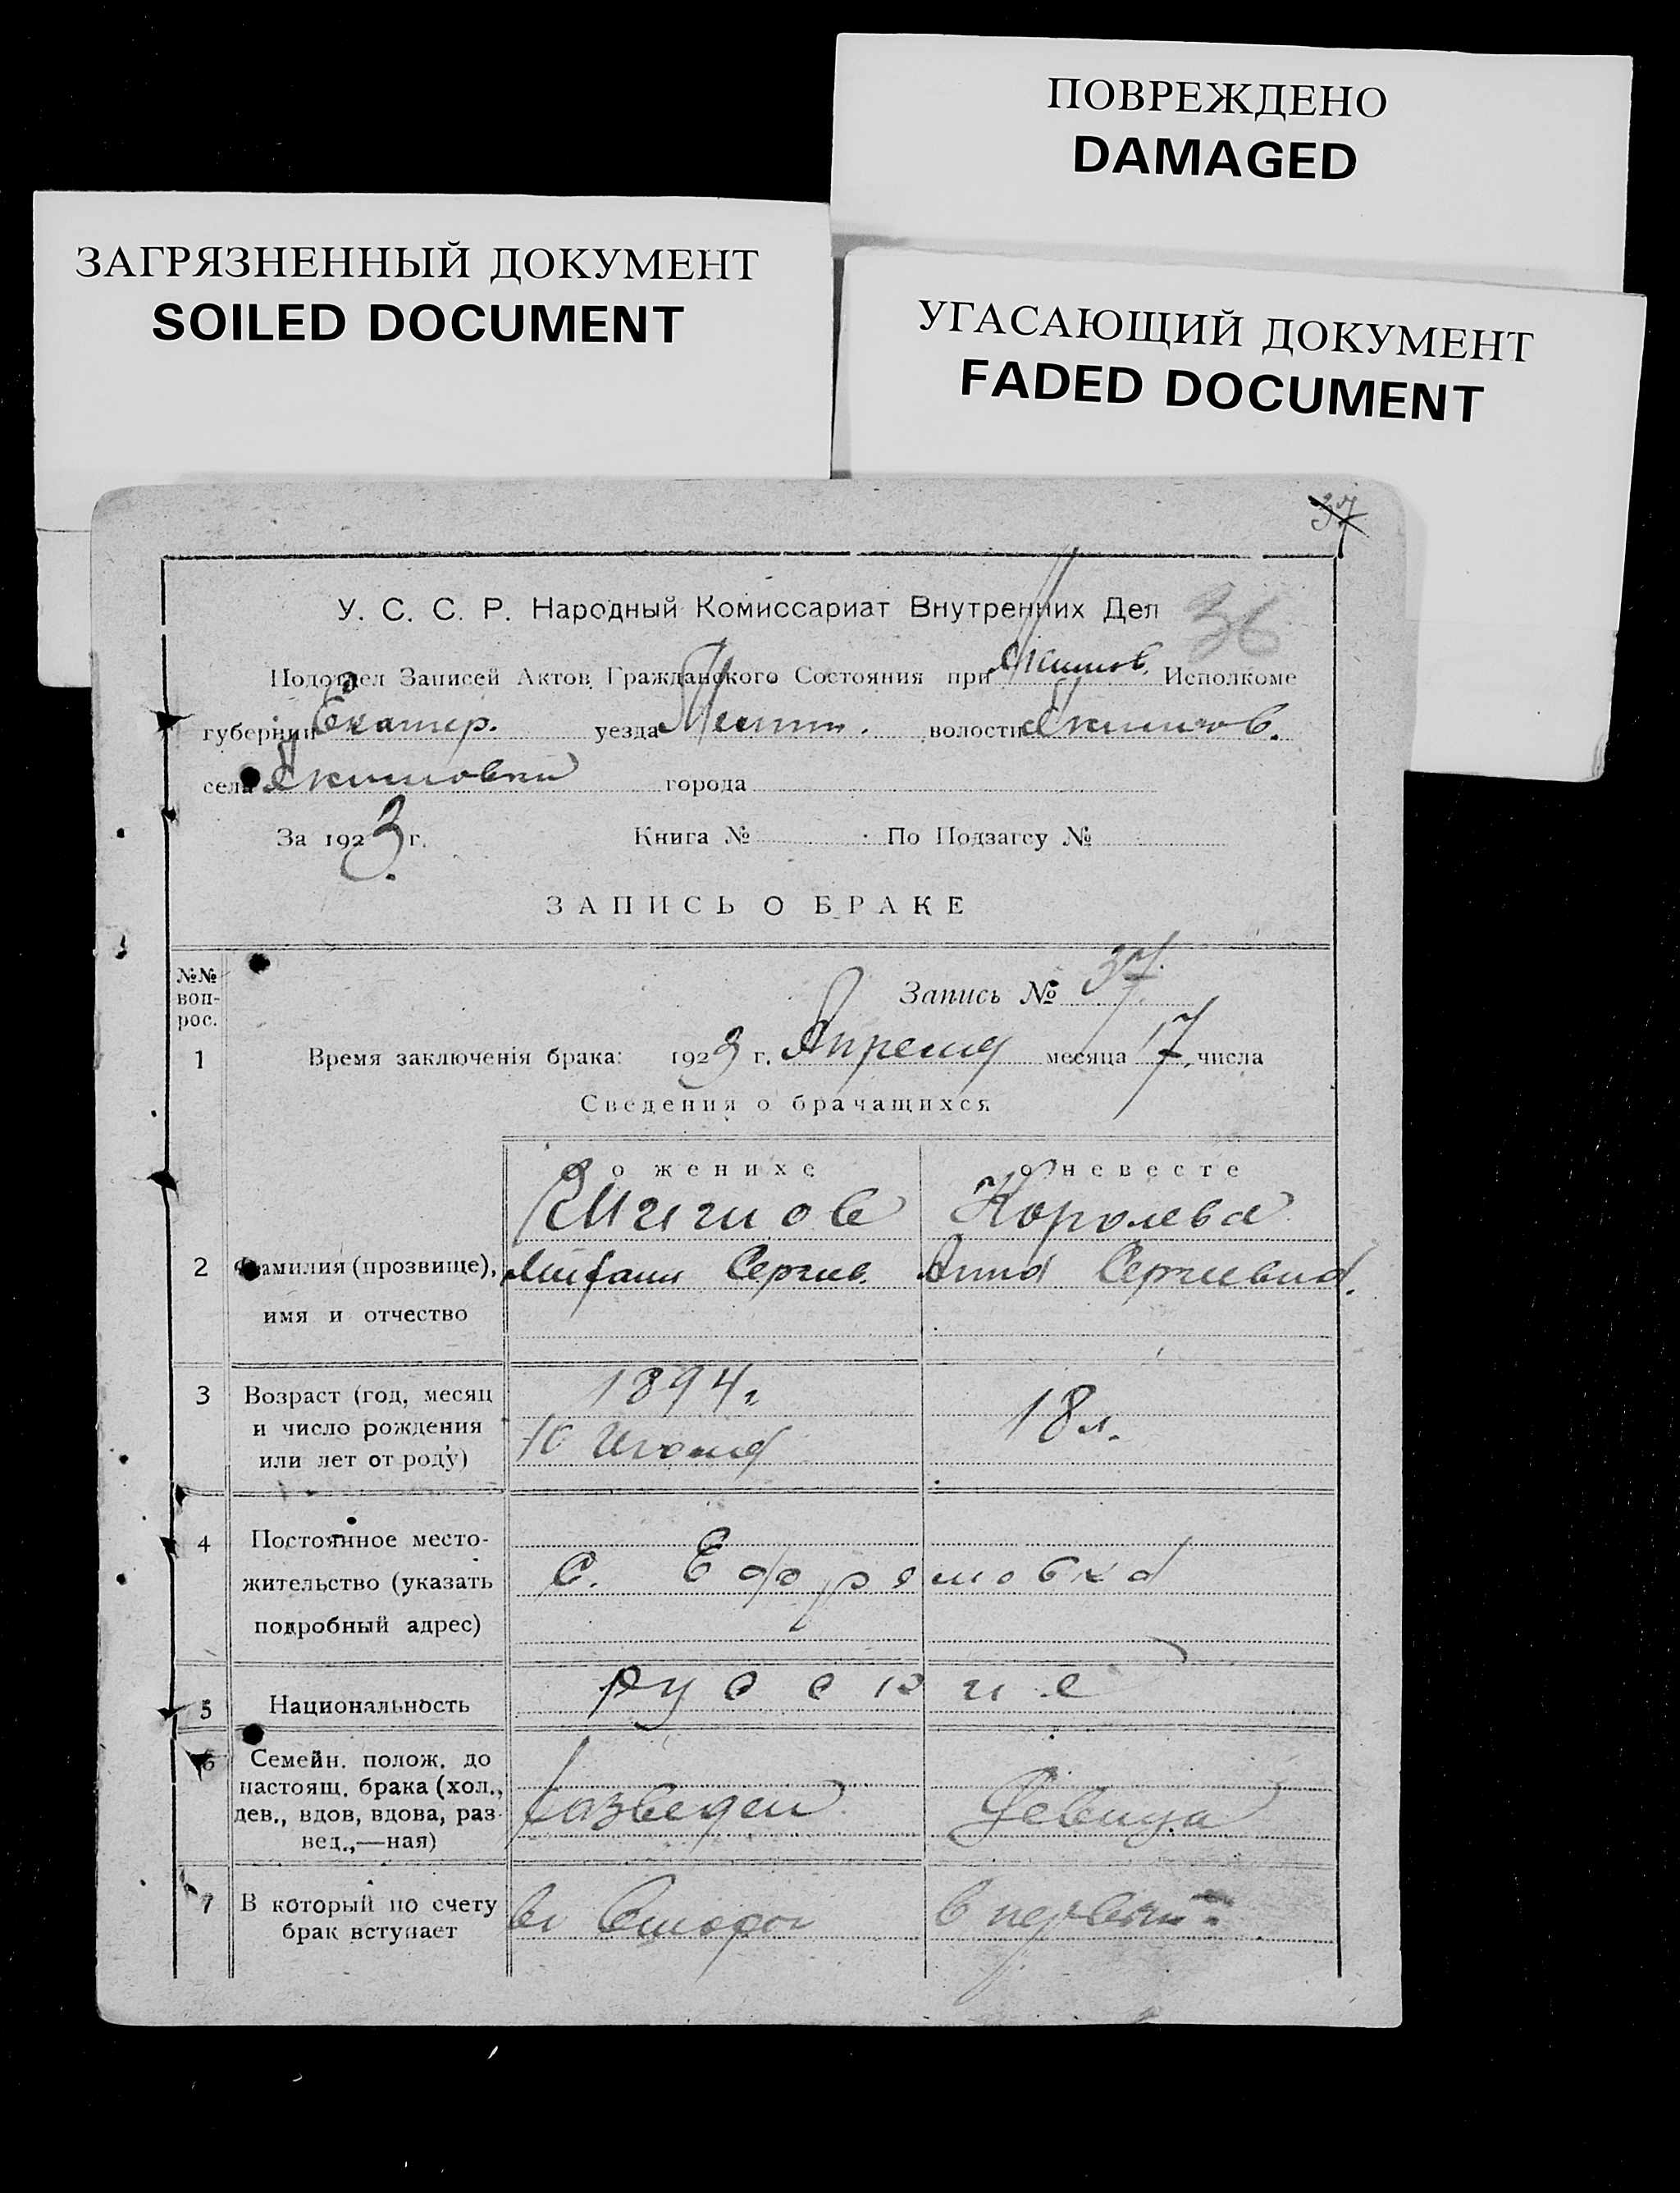 ПОВРЕЖДЕНО
DAMAGED
ЗАГРЯЗНЕННЫЙ ДОКУМЕНТ
SOILED DOCUMENT
УГАСАЮЩИЙ ДОКУМЕНТ
FADED DOCUMENT
37
У. С. С. Р. Народный Комиссариат Внутренних Дел 36
Подотдел Записей Актов Гражданского Состояния при Якимов. Исполкоме
губернии Екатер. уезда Мелит. волости Якимов.
села Якимовки города
За 1923 г. Книга № По Подзагсу №
ЗАПИСЬ О БРАКЕ
№№ воп- рос.
Запись № 37.
1 Время заключенія брака: 1923 г. Апреля месяца 17 числа
Сведения о брачащихся
о женихе о невесте
Королева
2 Фамилия (прозвище), Митфан Сергиев. Анна Сергиевна.
имя и отчество
3 Возраст (год, месяц 1894 г.
и число рождения 18 л.
или лет от роду) 10 Июня
4 Постоянное место-
жительство (указать с. Ефремовка
подробный адрес)
5 Национальность русские
6 Семейн. полож. до
настоящ. брака (хол.,
дев., вдов, вдова, раз- разведен Девица
вед.,—ная)
7 В который по счету во второй в первый
брак вступает